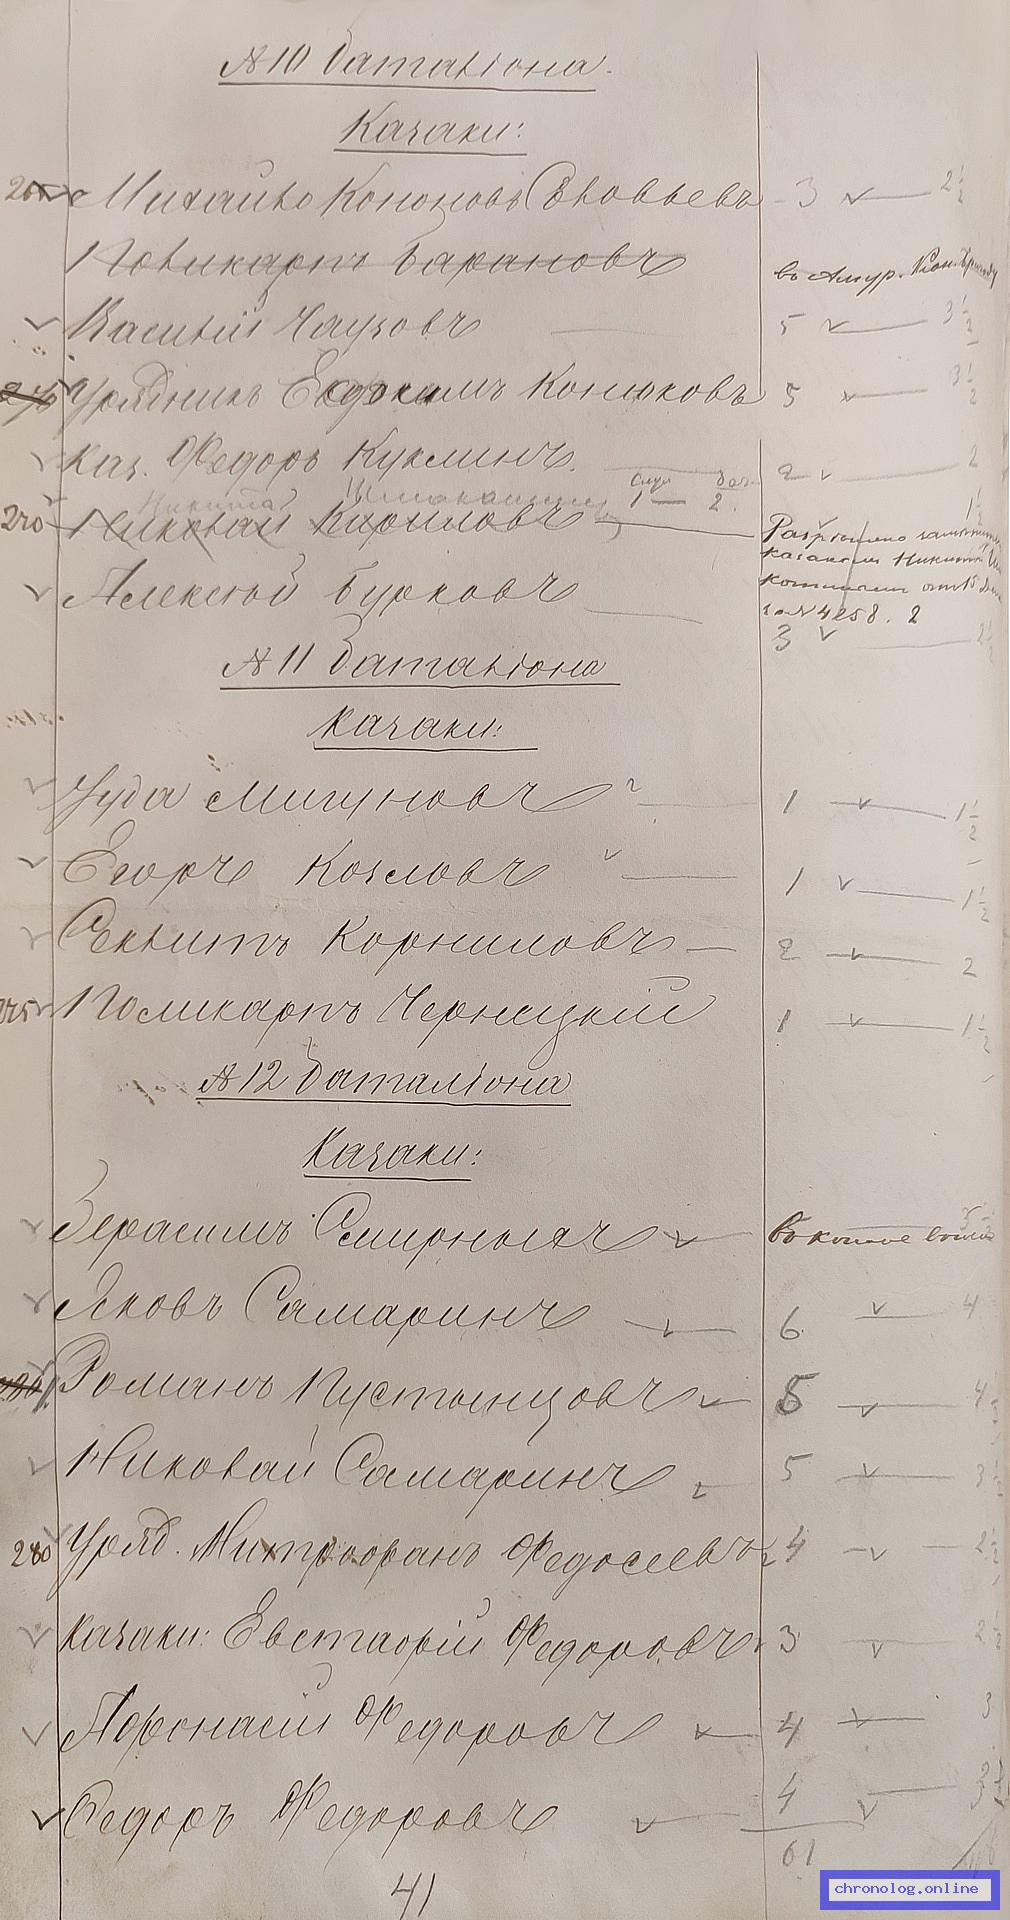 № 10 баталіона
Казаки:
Михайло Кононовъ Соловьевъ - 3 2 1/2
Поликарпъ Барановъ въ Амур. Кон. Бригаду
Василій Чаузовъ 5 3 1/2
Урядникъ Евдокимъ Конюковъ 5 3 1/2
Каз. Федоръ Куклинъ. 2 2
Никита 1 — 2.
270 Николай Кириловъ 1 1/2
казакомъ Никит
от 15
за № 4258. 2
Алексѣй Бурковъ 3 2 1/2
№ 11 баталіона
Казаки:
Іуда Мигуновъ 1 1 1/2
Егоръ Козловъ 1 1 1/2
Корниловъ — 2 2
275 Поликарпъ Черницкій 1 1 1/2
№ 12 баталіона
Казаки:
Герасимъ Смирныхъ въ
Яковъ Самаринъ 6 4
Романъ Пустынцовъ 5 4 1/2
Николай Самаринъ 5 3 1/2
280 Уряд. Митрофанъ Федосеевъ 4 2 1/2
Казаки: Евстафій Федоровъ 3 2 1/2
Афонасій Федоровъ 4 3
Федоръ Федоровъ 4 3 1/2
61
41
chronolog.online